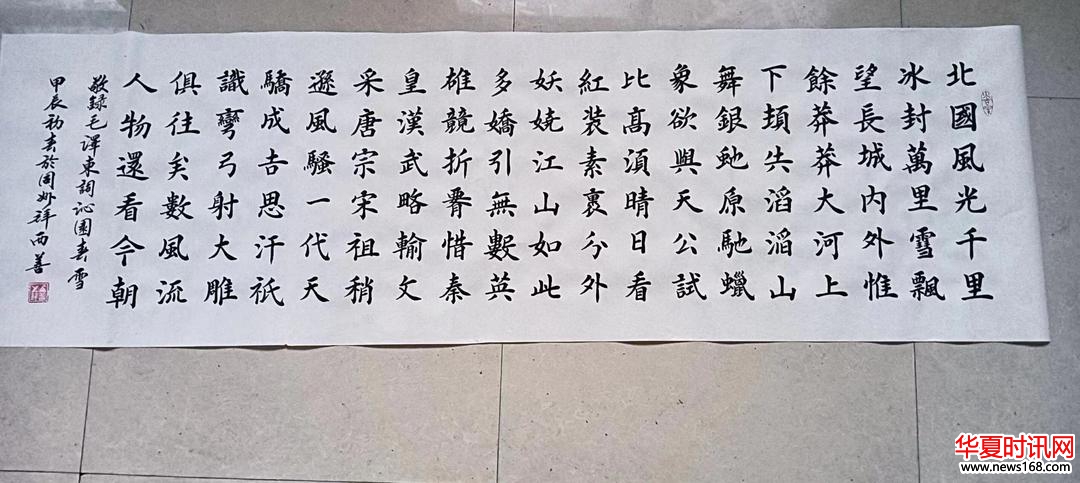 北國風光千里
冰封萬里雪飄
望長城內外惟
餘莽莽大河上
下頓失滔滔山
舞銀虵原馳蠟
象欲與天公試
比高須晴日看
紅裝素裹分外
妖嬈江山如此
多嬌引無數英
雄競折腰惜秦
皇漢武略輸文
采唐宗宋祖稍
遜風騷一代天
驕成吉思汗祇
識彎弓射大雕
俱往矣數風流
人物還看今朝
敬録毛澤東詞沁園春雪
甲辰初春於祥西善
华夏时讯网
www.news168.com